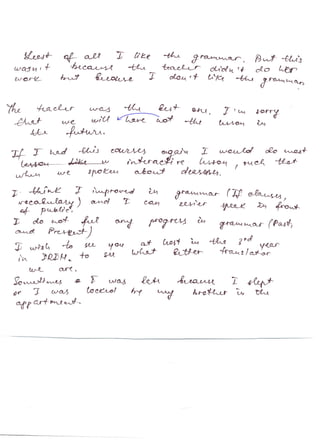 Least of all I like the grammar. But this
wasn't because the teacher didn't do her
work but because I don't like the grammar.
The teacher was the best one. I'm sorry
that we will have not the lesson in
the future.
If I had this courses again I would do most
lesson like w interactive lesson, such that
when we spoken about diseases.
I think I improved in grammar (If clauses,
vocabulary) and I can easier speak in front
of public.
I do not ful any progress in grammar (Past,
and Present)
I wish to see you at least in the 3rd year
in to see what better translator
we are.
Sometimes I was late because I slept
or I was locked by my brother in the
appartment.